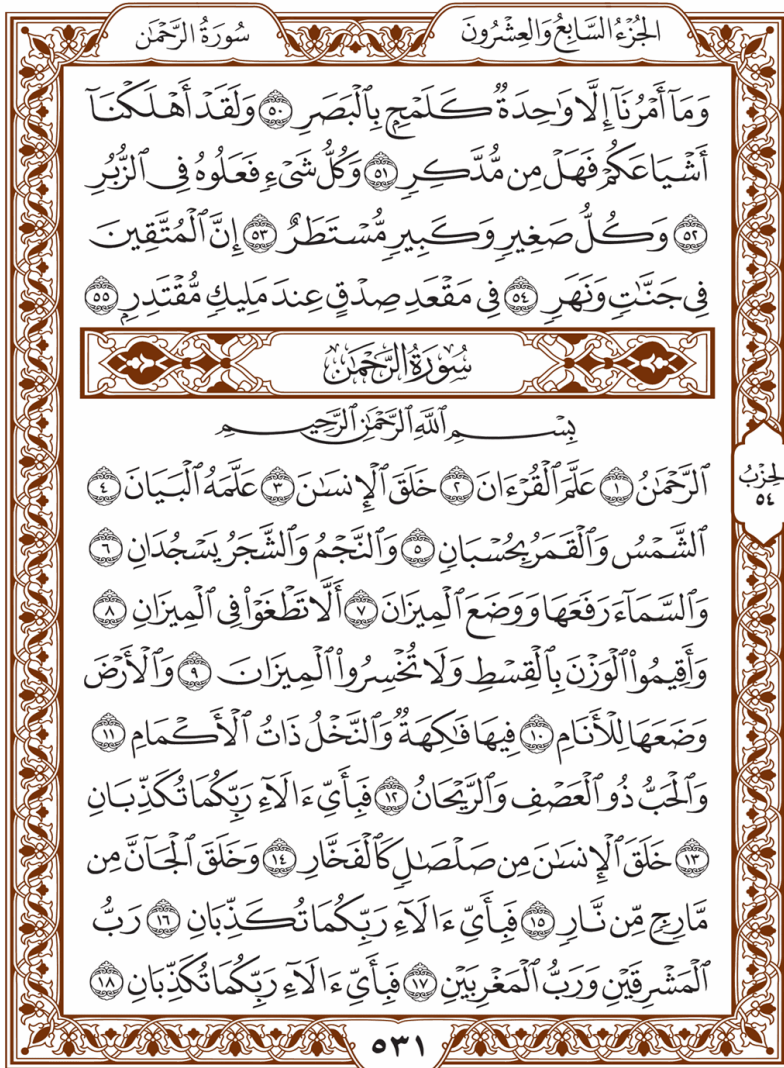 سُورَةُ الرَّحۡمَٰن
الجُزۡءُ السَّابِعُ وَالعِشۡرُونَ
وَمَآ أَمۡرُنَآ إِلَّا وَٰحِدَةٞ كَلَمۡحِۭ بِٱلۡبَصَرِ ٥٠ وَلَقَدۡ أَهۡلَكۡنَآ
أَشۡيَاعَكُمۡ فَهَلۡ مِن مُّدَّكِرٖ ٥١ وَكُلُّ شَيۡءٖ فَعَلُوهُ فِي ٱلزُّبُرِ
٥٢ وَكُلُّ صَغِيرٖ وَكَبِيرٖ مُّسۡتَطَرٌ ٥٣ إِنَّ ٱلۡمُتَّقِينَ
فِي جَنَّٰتٖ وَنَهَرٖ ٥٤ فِي مَقۡعَدِ صِدۡقٍ عِندَ مَلِيكٖ مُّقۡتَدِرِۭ ٥٥
سُورَةُ الرَّحۡمَٰن
بِسۡمِ ٱللَّهِ ٱلرَّحۡمَٰنِ ٱلرَّحِيمِ
ٱلرَّحۡمَٰنُ ١ عَلَّمَ ٱلۡقُرۡءَانَ ٢ خَلَقَ ٱلۡإِنسَٰنَ ٣ عَلَّمَهُ ٱلۡبَيَانَ ٤
ٱلشَّمۡسُ وَٱلۡقَمَرُ بِحُسۡبَانٖ ٥ وَٱلنَّجۡمُ وَٱلشَّجَرُ يَسۡجُدَانِ ٦
وَٱلسَّمَآءَ رَفَعَهَا وَوَضَعَ ٱلۡمِيزَانَ ٧ أَلَّا تَطۡغَوۡاْ فِي ٱلۡمِيزَانِ ٨
وَأَقِيمُواْ ٱلۡوَزۡنَ بِٱلۡقِسۡطِ وَلَا تُخۡسِرُواْ ٱلۡمِيزَانَ ٩ وَٱلۡأَرۡضَ
وَضَعَهَا لِلۡأَنَامِ ١٠ فِيهَا فَٰكِهَةٞ وَٱلنَّخۡلُ ذَاتُ ٱلۡأَكۡمَامِ ١١
وَٱلۡحَبُّ ذُو ٱلۡعَصۡفِ وَٱلرَّيۡحَانُ ١٢ فَبِأَيِّ ءَالَآءِ رَبِّكُمَا تُكَذِّبَانِ
١٣ خَلَقَ ٱلۡإِنسَٰنَ مِن صَلۡصَٰلٖ كَٱلۡفَخَّارِ ١٤ وَخَلَقَ ٱلۡجَآنَّ مِن
مَّارِجٖ مِّن نَّارٖ ١٥ فَبِأَيِّ ءَالَآءِ رَبِّكُمَا تُكَذِّبَانِ ١٦ رَبُّ
ٱلۡمَشۡرِقَيۡنِ وَرَبُّ ٱلۡمَغۡرِبَيۡنِ ١٧ فَبِأَيِّ ءَالَآءِ رَبِّكُمَا تُكَذِّبَانِ ١٨
الحِزۡبُ
٥٤
٥٣١